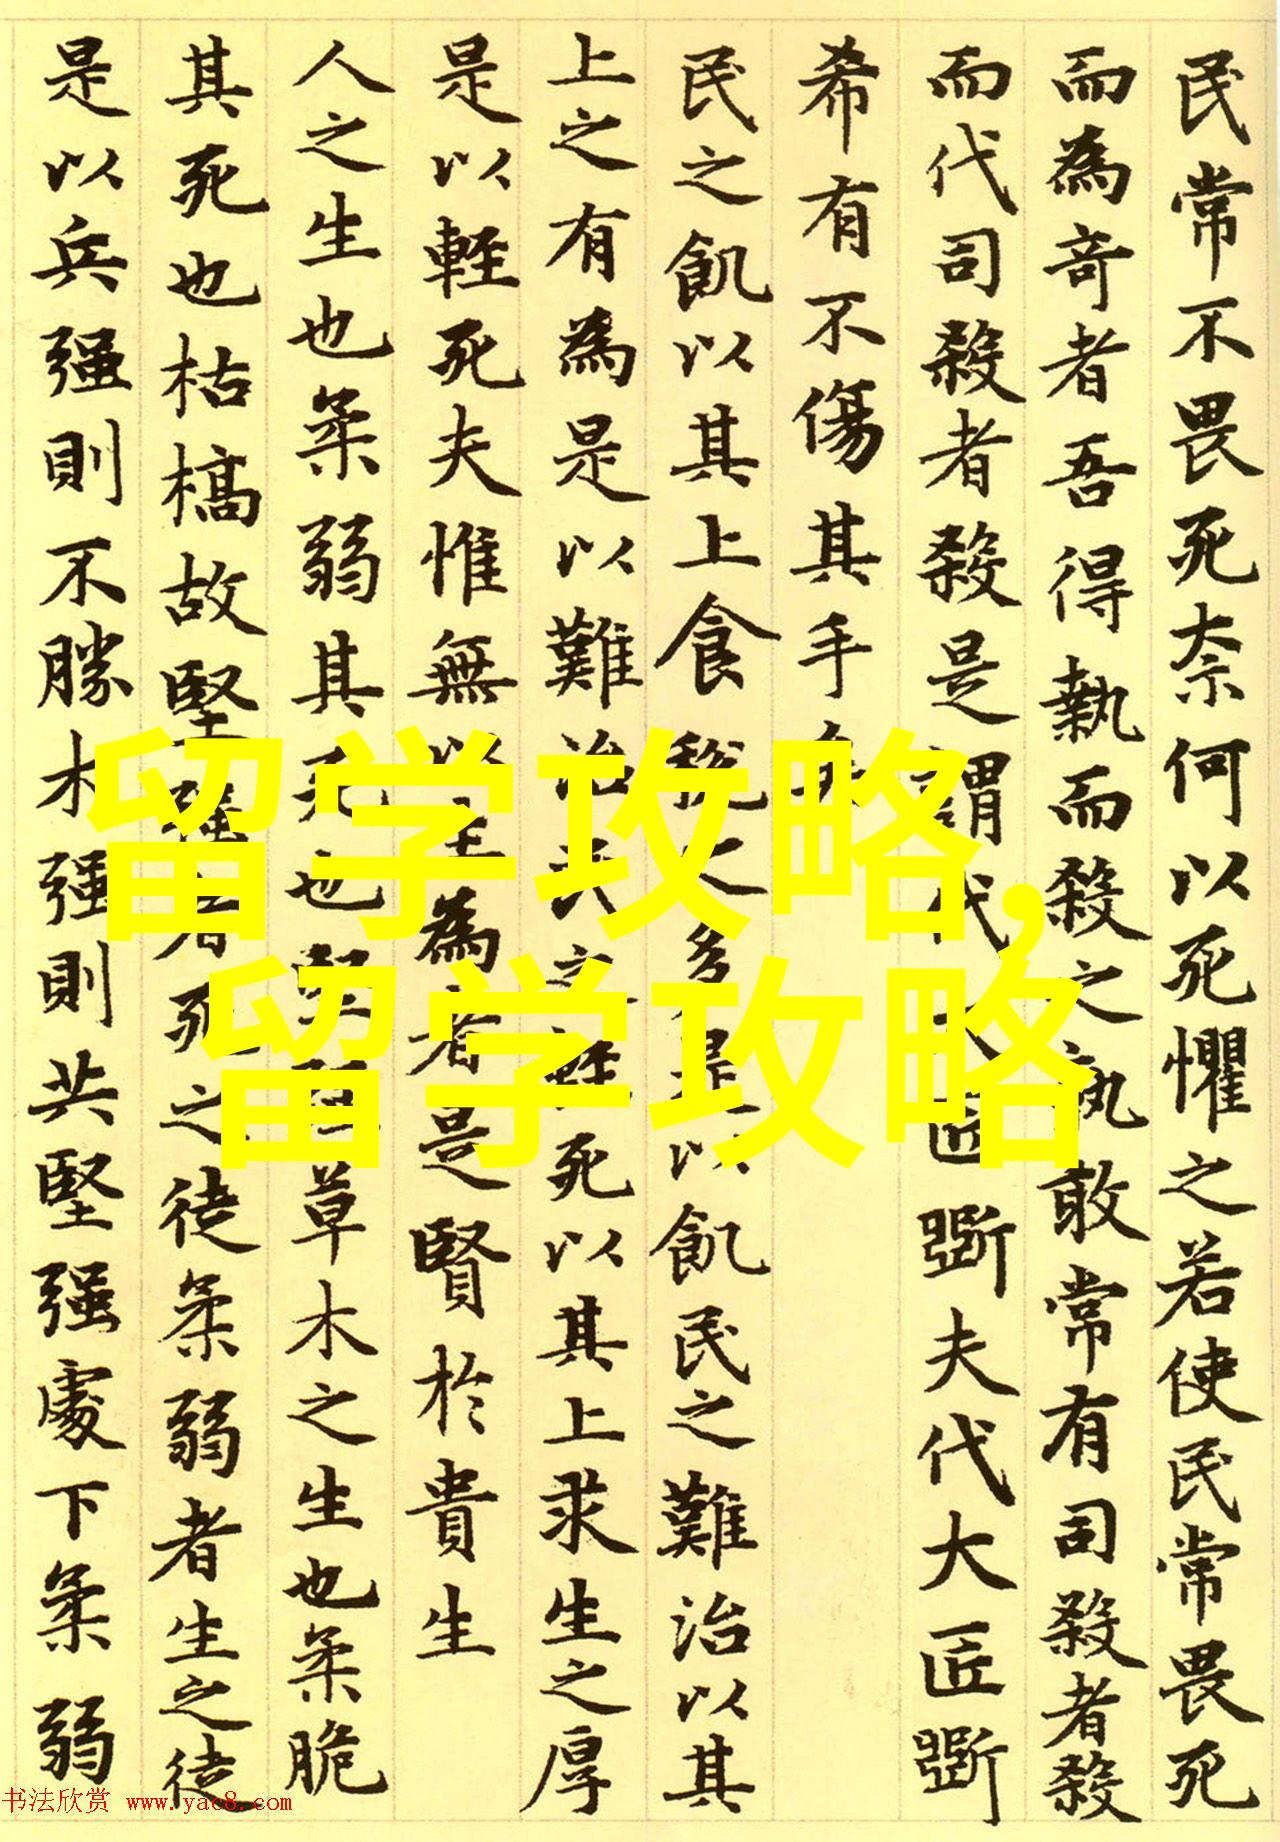 民常不畏死奈何以死懼之若使民常畏死
而為竒者吾得執而殺之孰敢常有司殺者殺
而代司殺者殺是謂代大匠斲夫代大匠斲
希有不傷其手矣
民之飢以其上食稅之多是以飢民之難治以其
上之有為是以難治民之輕死以其上求生之厚
是以輕死夫惟無以生為者是賢於貴生
人之生也柔弱其死也堅强草木之生也柔脆
其死也枯槁故堅强者死之徒柔弱者生之徒
是以兵强則不勝木强則共堅强處下柔弱
留学攻略,
留学攻略
书法欣赏 www.yac8.com